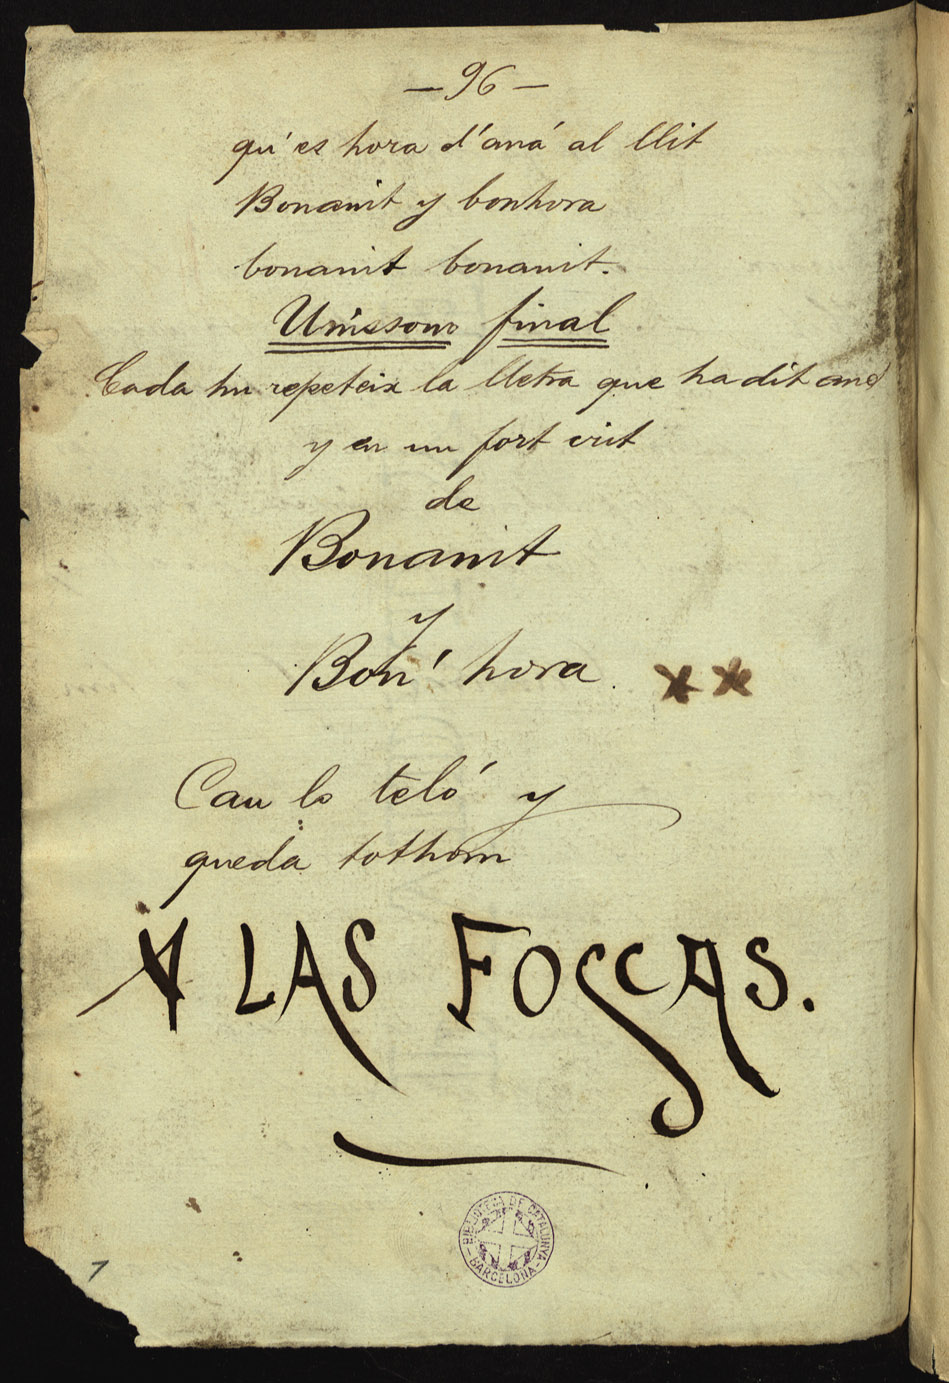 — 96 —
qu'es hora d'aná al llit
Bonanit y bonhora
bonanit bonanit.
Unissono final
Cada hu repeteix la lletra que ha dit
y en un fort crit
de
Bonanit
y
Bon' hora.
Cau lo teló y
queda tothom
A LAS FOSCAS.
BIBLIOTECA DE CATALUNYA
- BARCELONA -